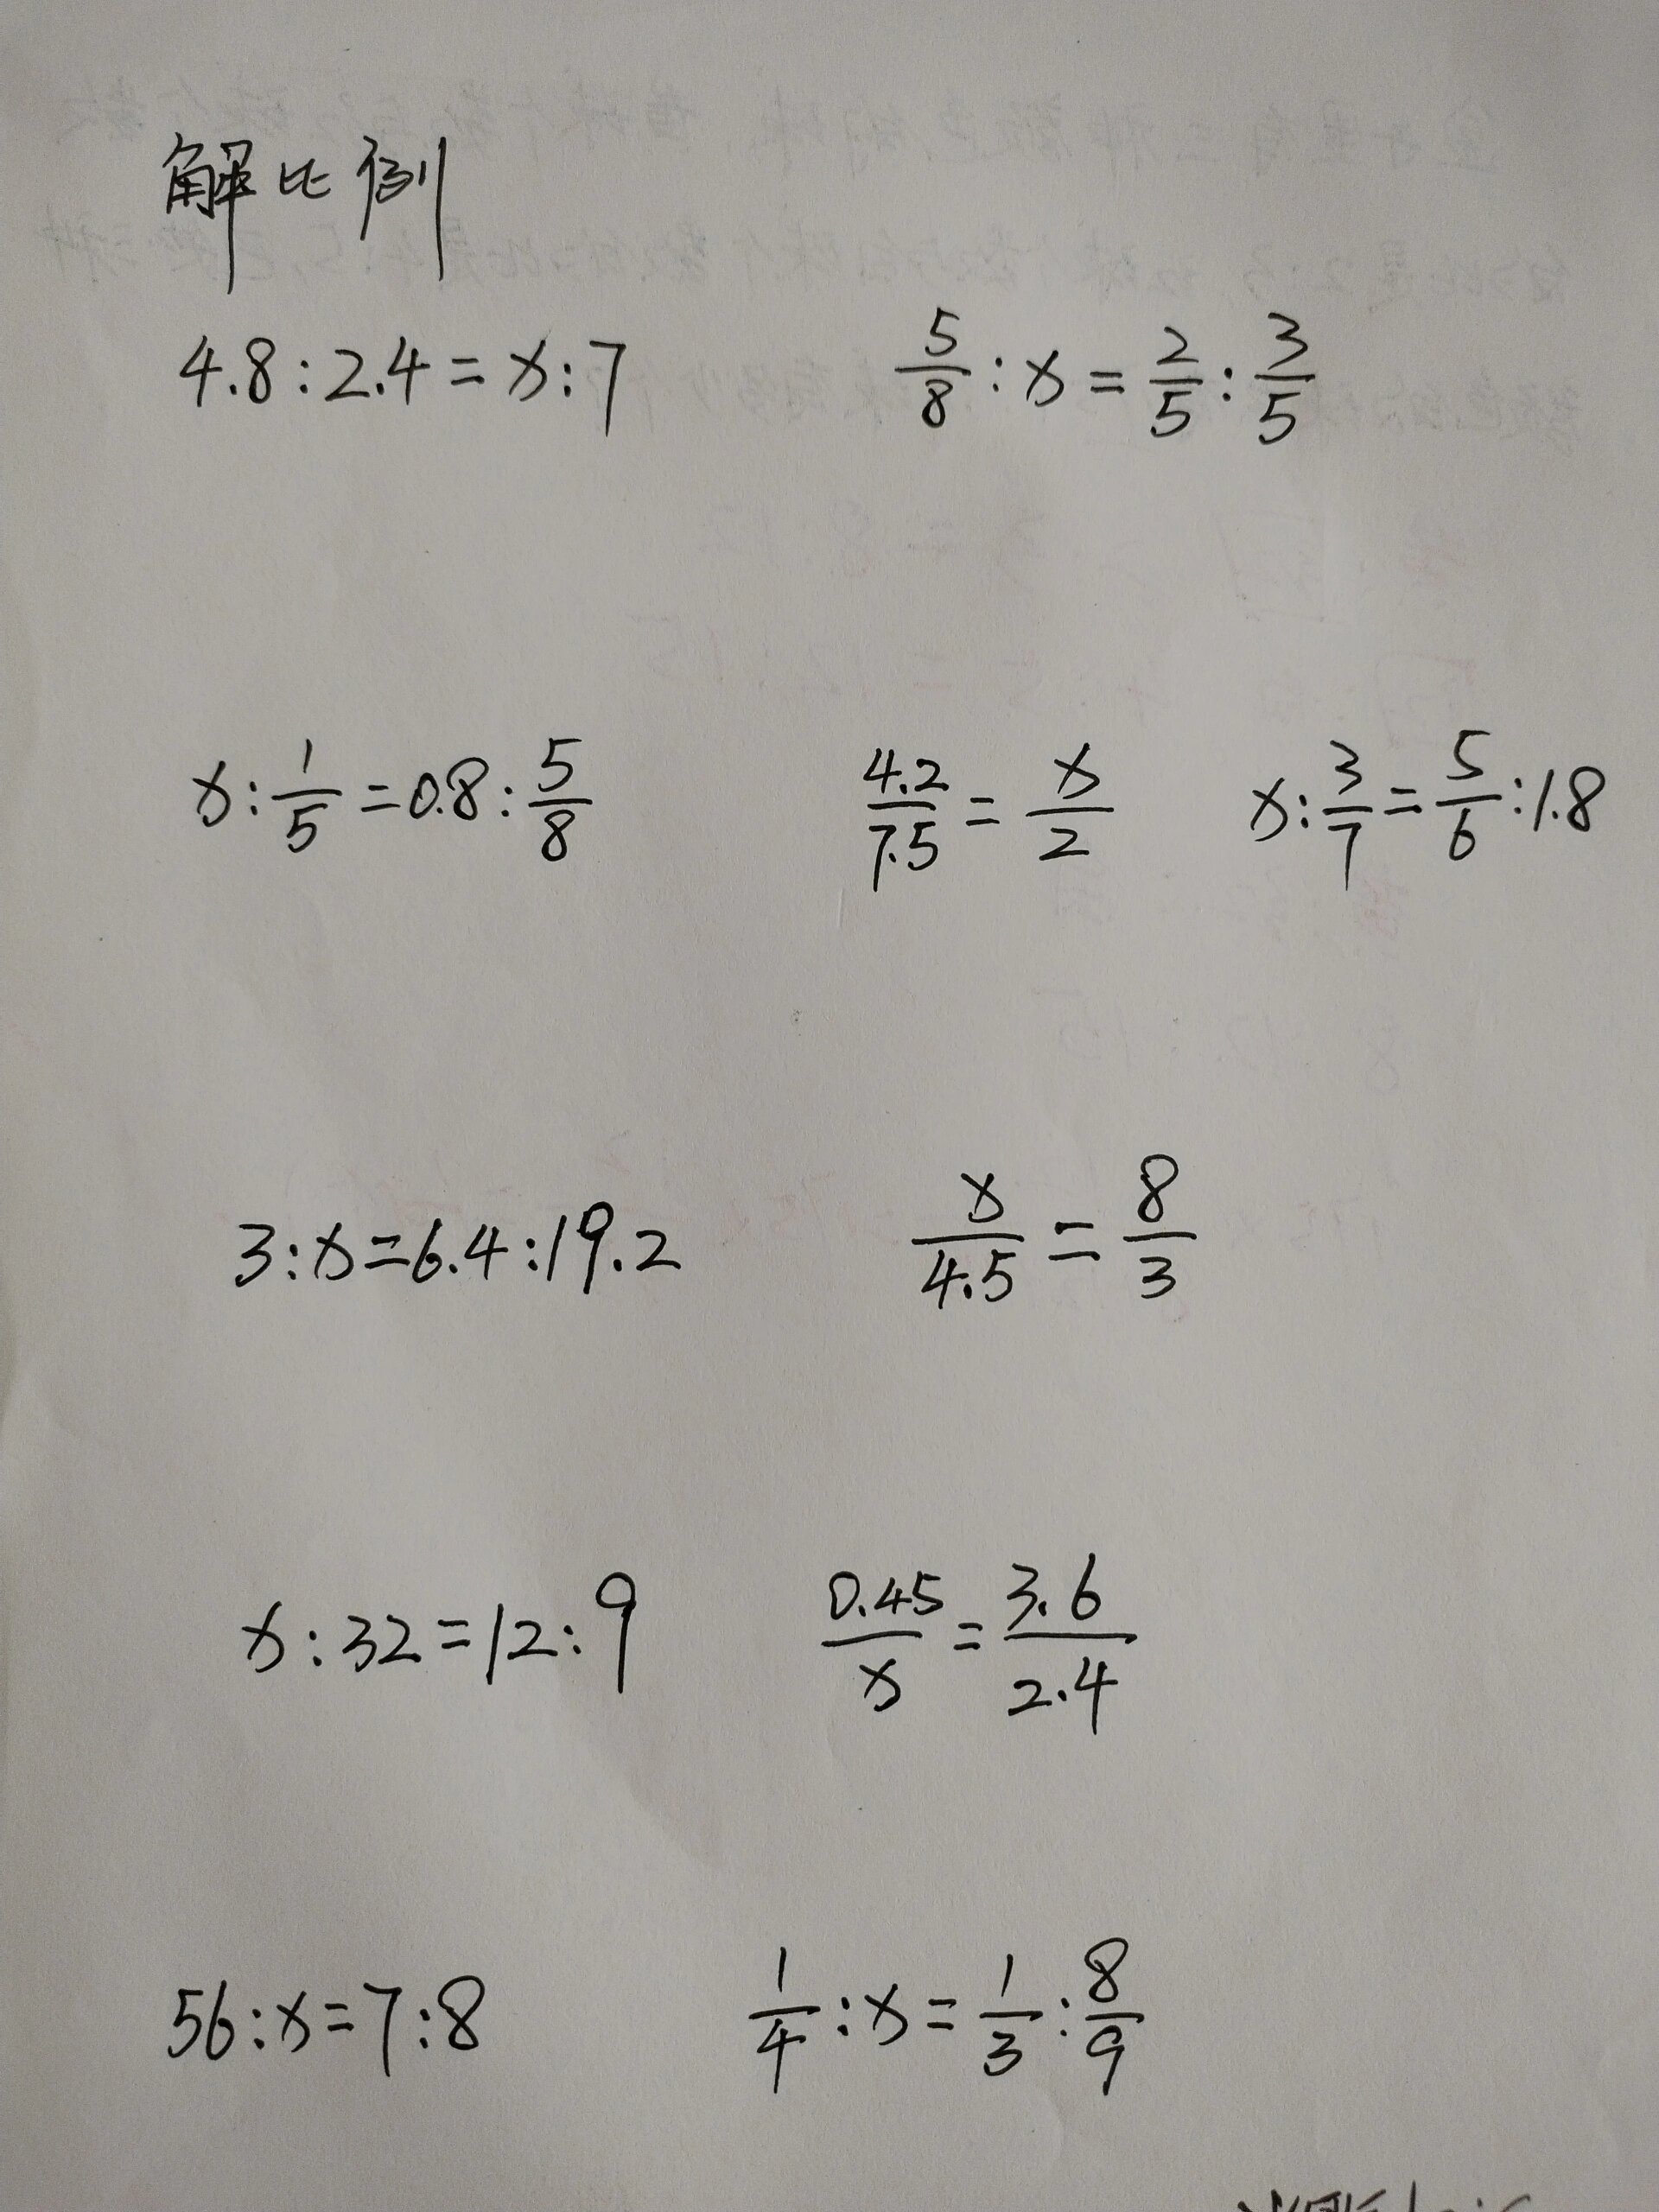 解比例
4.8:2.4=x:7 5/8:x=2/5:3/5
x:1/5=0.8:5/8 4.2/7.5=x/2 x:3/7=5/6:1.8
3:x=6.4:19.2 x/4.5=8/3
x:32=12:9 0.45/x=3.6/2.4
56:x=7:8 1/4:x=1/3:8/9